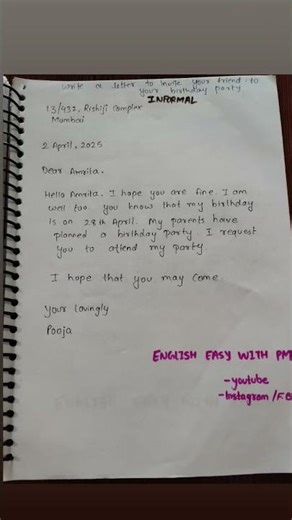 write a letter to invite your friend to
your birthday party
INFORMAL
13/431, Rishiji Complex
Mumbai
2 April, 2025
Dear Amrita.
Hello Amrita. I hope you are fine. I am
well too. you know that my birthday
is on 28th April. My parents have
planned a birthday party. I request
you to attend my party.
I hope that you may come
Your lovingly
Pooja
ENGLISH EASY WITH PM
-youtube
-Instagram/FB